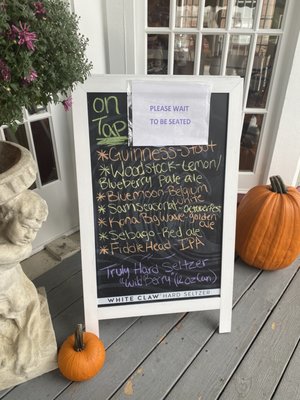 on
Tap
PLEASE WAIT
TO BE SEATED
*Guinness-Stout
*Woodstock-Lemon/
Blueberry Pale ale
*Bluemoon-Belgium
White
*Sam Seasonal-Octoberfest
*Kona Big Wave-golden
ale
*Sebago-Red ale
*Fiddle Head IPA
Truly Hard Seltzer
Wild Berry (12oz Can)
WHITE CLAW HARD SELTZER